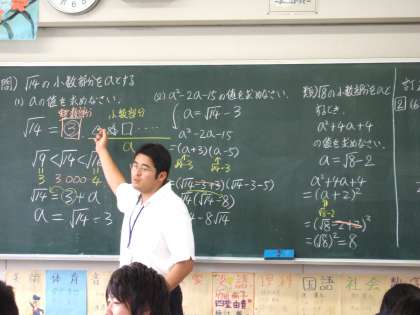 問) √14 の小数部分をaとする
(1) aの値を求めなさい。
整数部分 小数部分
√14 = ③
a
√9 < √14 < √1
3 3.000 4
√14 = ③ + a
a = √14 − 3
(2) a²−2a−15の値を求めなさい。
a = √14 − 3
a²−2a−15
= (a+3)(a−5)
√14−3 √14−3
= (√14−3+3)(√14−3−5)
√14(√14−8)
4−8√14
類) √8の小数部分をaと
するとき、
a²+4a+4
の値を求めなさい。
a = √8−2
a²+4a+4
= (a+2)²
√8−2
= (√8−2+2)²
= (√8)² = 8
体育
国語
社会